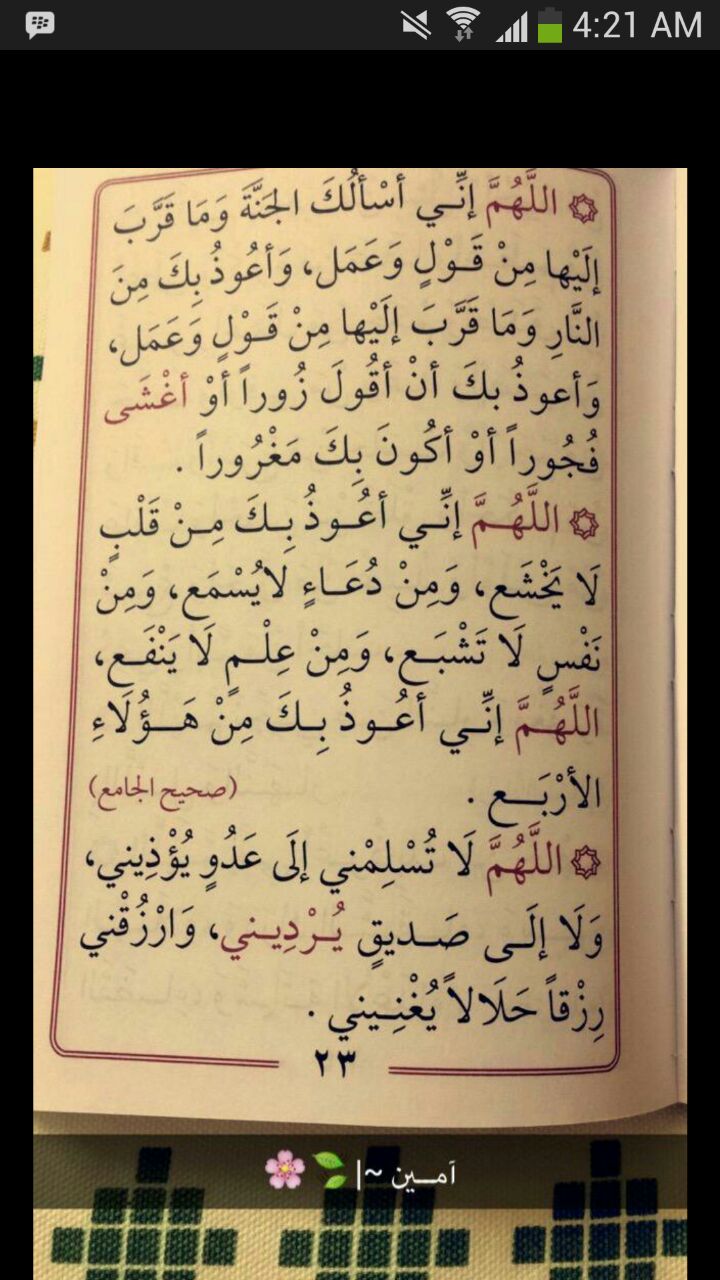 4:21 AM
اللَّهُمَّ إنِّـي أسْألُكَ الجَنَّةَ وَمَا قَرَّبَ
إلَيْها مِنْ قَـوْلٍ وَعَمَل، وَأعُوذُ بِكَ مِنَ
النَّارِ وَمَا قَرَّبَ إلَيْها مِنْ قَـوْلٍ وَعَمَل،
وَأعوذُ بكَ أنْ أقُولَ زُوراً أوْ أغْشَى
فُجُوراً أوْ أكُونَ بِكَ مَغْرُوراً .
اللَّهُـمَّ إنِّـي أعُـوذُ بِـكَ مِـنْ قَلْبٍ
لَا يَخْشَع، وَمِنْ دُعَـاءٍ لايُسْمَع، وَمِنْ
نَفْسٍ لَا تَشْبَـع، وَمِنْ عِلْـمٍ لَا يَنْفَـع،
اللَّهُـمَّ إنِّـي أعُـوذُ بِـكَ مِنْ هَـؤُلَاءِ
الأرْبَـع . (صحيح الجامع)
اللَّهُمَّ لَا تُسْلِمْني إلَى عَدُوٍ يُؤْذِيني،
وَلَا إلَـى صَـديقٍ يُـرْدِيـني، وَارْزُقْني
رِزْقاً حَلَالاً يُغْنِـيني .
٢٣
آمـين ~|